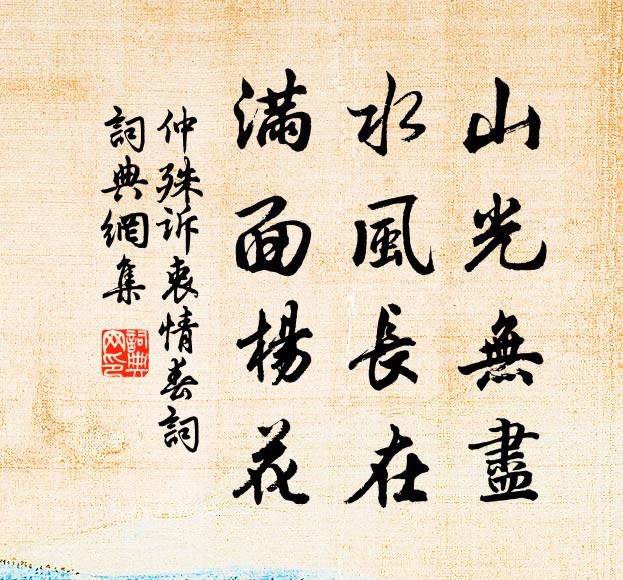 山光無盡
水風長在
滿面楊花
仲殊訴衷情春詞
詞典網集
詞典網印